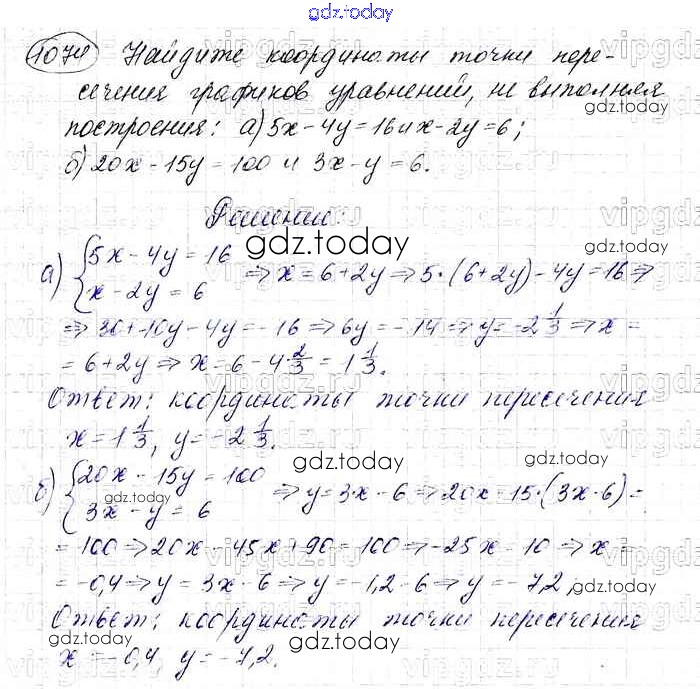 gdz.today
1074 Найдите координаты точки пере-
сечения графиков уравнений, не выполняя
построения: а) 5x - 4y = 16 и x - 2y = 6;
б) 20x - 15y = 100 и 3x - y = 6.
Решение:
gdz.today
а) { 5x - 4y = 16
x - 2y = 6 ⇒ x = 6 + 2y ⇒ 5·(6 + 2y) - 4y = 16 ⇒
⇒ 30 + 10y - 4y = - 16 ⇒ 6y = - 14 ⇒ y = -2 1/3 ⇒ x =
= 6 + 2y ⇒ x = 6 - 4 2/3 = 1 1/3.
Ответ: координаты точки пересечения
x = 1 1/3, y = -2 1/3.
gdz.today
gdz.today
б) { 20x - 15y = 100
3x - y = 6 ⇒ y = 3x - 6 ⇒ 20x - 15·(3x - 6) =
gdz.today
= 100 ⇒ 20x - 45x + 90 = 100 ⇒ -25x = 10 ⇒ x =
= -0,4 ⇒ y = 3x - 6 ⇒ y = -1,2 - 6 ⇒ y = - 7,2,
gdz.today
Ответ: координаты точки пересечения
gdz.today
x = -0,4, y = -7,2.
gdz.today